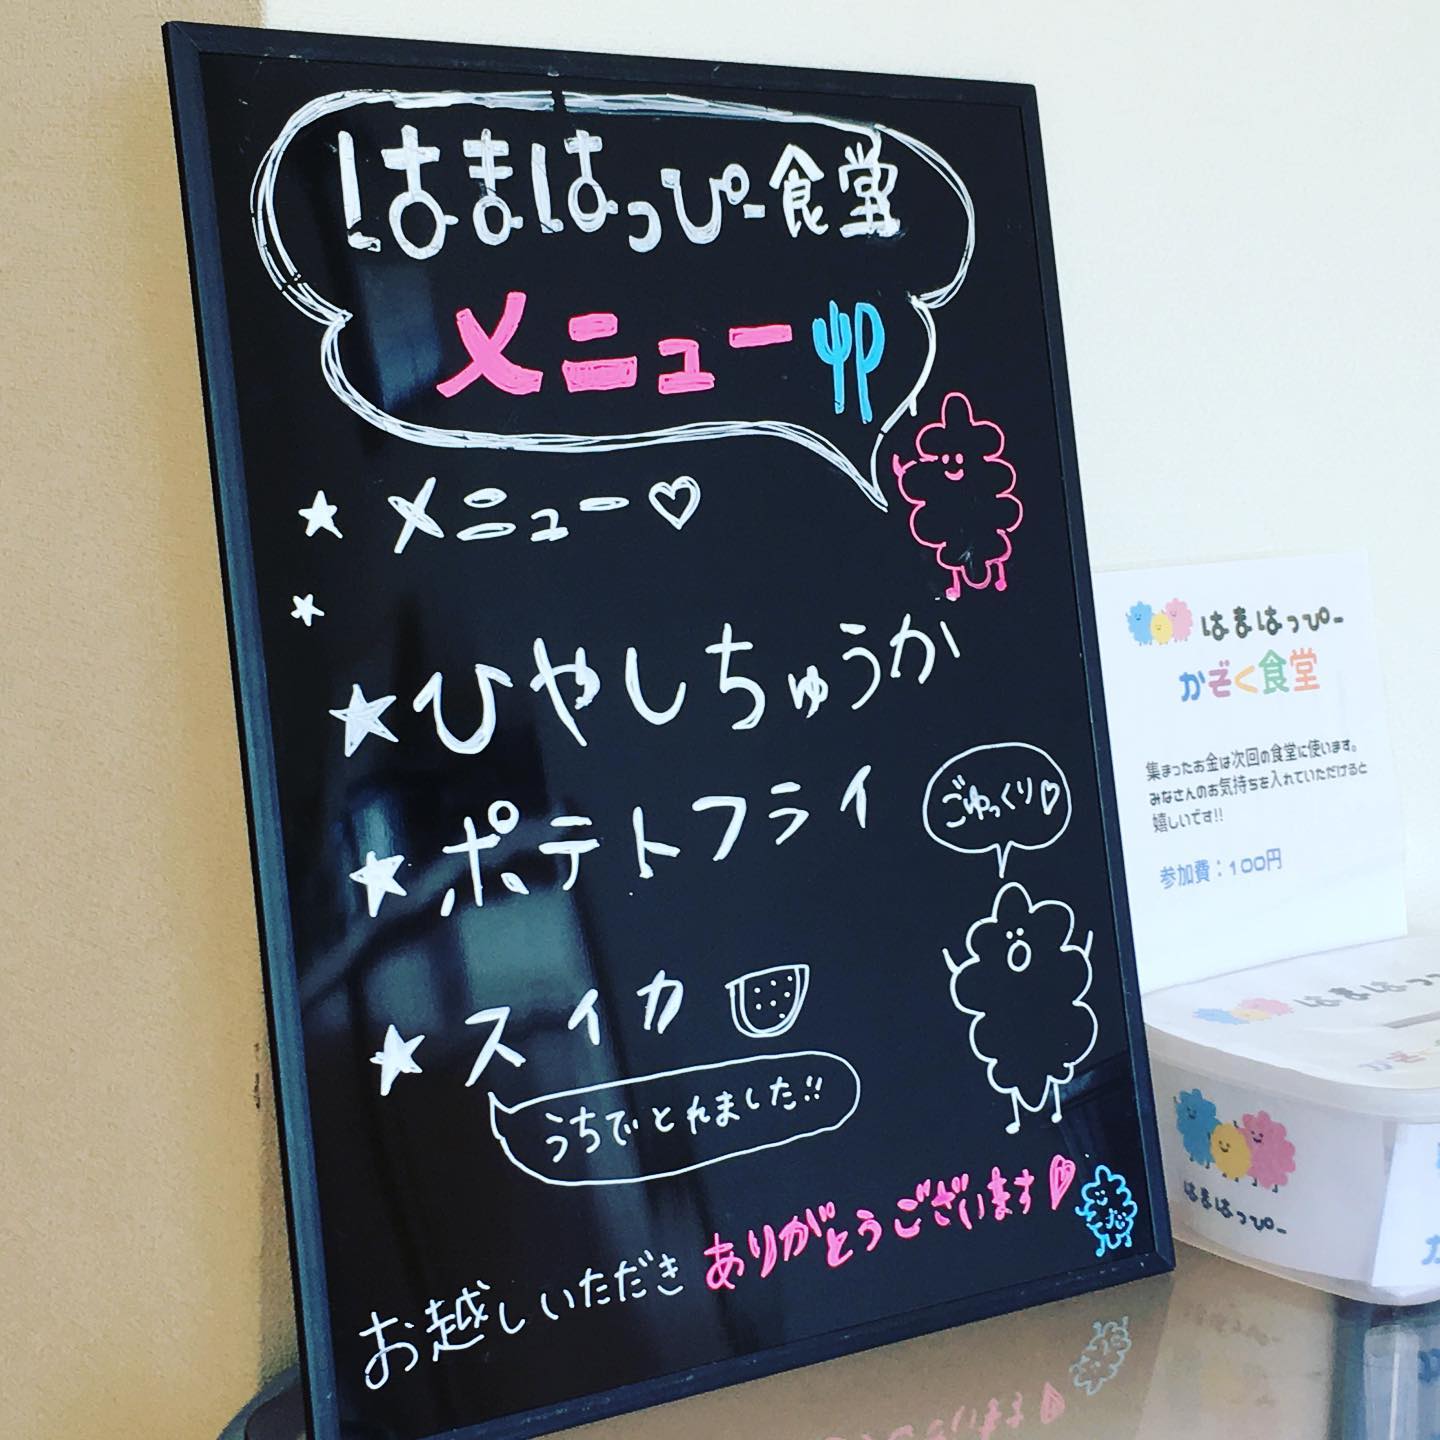 はまはっぴー食堂
メニュー
★ メニュー♡
★
★ひやしちゅうか
★ポテトフライ
ごゆっくり♡
★スイカ
うちでとれました!!
お越しいただきありがとうございます♡
はまはっぴー
かぞく食堂
集まったお金は次回の食堂に使います。
みなさんのお気持ちを入れていただけると
嬉しいです!!
参加費：100円
はまはっ
かぞく
はまはっぴー